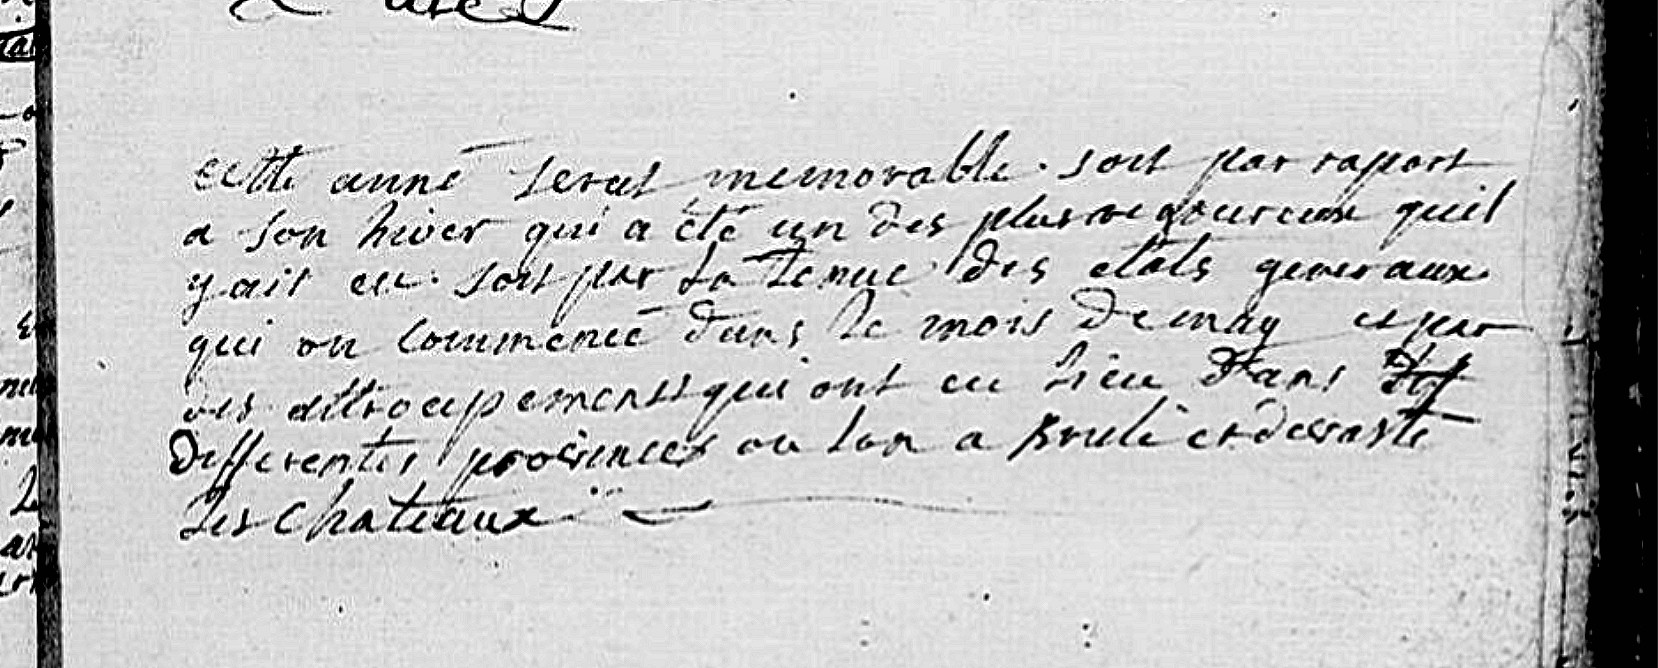 cette anné serat memorable. soit par raport
a son hiver qui a été un des plus regoureux quil
y ait eu. soit par la tenue des etats generaux
qui on commencé dans le mois de may et par
des attroupements qui ont eu lieu dans
differentes provinces ou lon a brulé et devasté
les chateaux